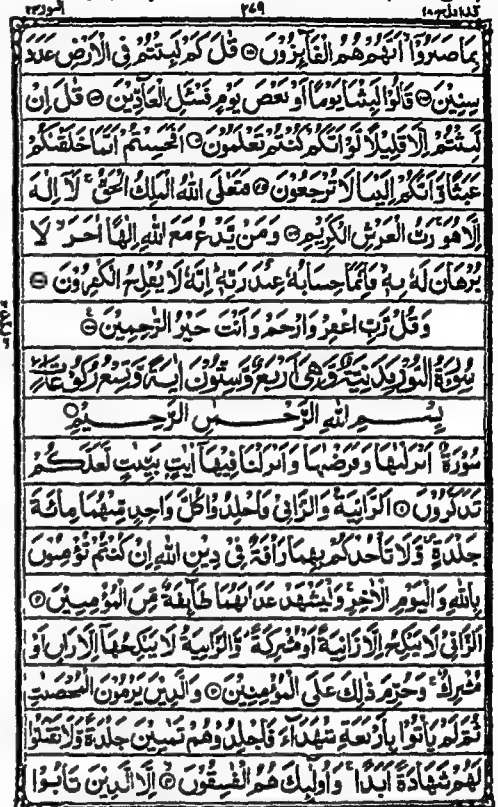 قد افلح ١٨ ٣٦٩ النور ٢٤
بِمَا صَبَرُوْٓا اَنَّهُمْ هُمُ الْفَآئِزُوْنَ ۝ قٰلَ كَمْ لَبِثْتُمْ فِي الْاَرْضِ عَدَدَ
سِنِيْنَ ۝ قَالُوْا لَبِثْنَا يَوْمًا اَوْ بَعْضَ يَوْمٍ فَسْئَلِ الْعَآدِّيْنَ ۝ قٰلَ اِنْ
لَّبِثْتُمْ اِلَّا قَلِيْلًا لَّوْ اَنَّكُمْ كُنْتُمْ تَعْلَمُوْنَ ۝ اَفَحَسِبْتُمْ اَنَّمَا خَلَقْنٰكُمْ
عَبَثًا وَّاَنَّكُمْ اِلَيْنَا لَا تُرْجَعُوْنَ ۝ فَتَعٰلَى اللّٰهُ الْمَلِكُ الْحَقُّ ۚ لَآ اِلٰهَ
اِلَّا هُوَ ۚ رَبُّ الْعَرْشِ الْكَرِيْمِ ۝ وَمَنْ يَّدْعُ مَعَ اللّٰهِ اِلٰهًا اٰخَرَ ۙ لَا
بُرْهَانَ لَهٗ بِهٖ ۙ فَاِنَّمَا حِسَابُهٗ عِنْدَ رَبِّهٖ ؕ اِنَّهٗ لَا يُفْلِحُ الْكٰفِرُوْنَ ۝
وَ قُلْ رَّبِّ اغْفِرْ وَارْحَمْ وَاَنْتَ خَيْرُ الرّٰحِمِيْنَ ۝
سُوْرَةُ النُّوْرِ مَدَنِيَّةٌ وَّهِيَ اَرْبَعٌ وَّسِتُّوْنَ اٰيَةً وَّتِسْعُ رُكُوْعَاتٍ
بِسْمِ اللّٰهِ الرَّحْمٰنِ الرَّحِيْمِ ۝
سُوْرَةٌ اَنْزَلْنٰهَا وَفَرَضْنٰهَا وَاَنْزَلْنَا فِيْهَآ اٰيٰتٍۭ بَيِّنٰتٍ لَّعَلَّكُمْ
تَذَكَّرُوْنَ ۝ اَلزَّانِيَةُ وَالزَّانِيْ فَاجْلِدُوْا كُلَّ وَاحِدٍ مِّنْهُمَا مِائَةَ
جَلْدَةٍ ۪ وَّلَا تَاْخُذْكُمْ بِهِمَا رَاْفَةٌ فِيْ دِيْنِ اللّٰهِ اِنْ كُنْتُمْ تُؤْمِنُوْنَ
بِاللّٰهِ وَالْيَوْمِ الْاٰخِرِ ۚ وَلْيَشْهَدْ عَذَابَهُمَا طَآئِفَةٌ مِّنَ الْمُؤْمِنِيْنَ ۝
اَلزَّانِيْ لَا يَنْكِحُ اِلَّا زَانِيَةً اَوْ مُشْرِكَةً ۡ وَّالزَّانِيَةُ لَا يَنْكِحُهَآ اِلَّا زَانٍ اَوْ
مُشْرِكٌ ۚ وَحُرِّمَ ذٰلِكَ عَلَى الْمُؤْمِنِيْنَ ۝ وَالَّذِيْنَ يَرْمُوْنَ الْمُحْصَنٰتِ
ثُمَّ لَمْ يَاْتُوْا بِاَرْبَعَةِ شُهَدَآءَ فَاجْلِدُوْهُمْ ثَمٰنِيْنَ جَلْدَةً وَّلَا تَقْبَلُوْا
لَهُمْ شَهَادَةً اَبَدًا ۚ وَاُولٰٓئِكَ هُمُ الْفٰسِقُوْنَ ۝ اِلَّا الَّذِيْنَ تَابُوْا